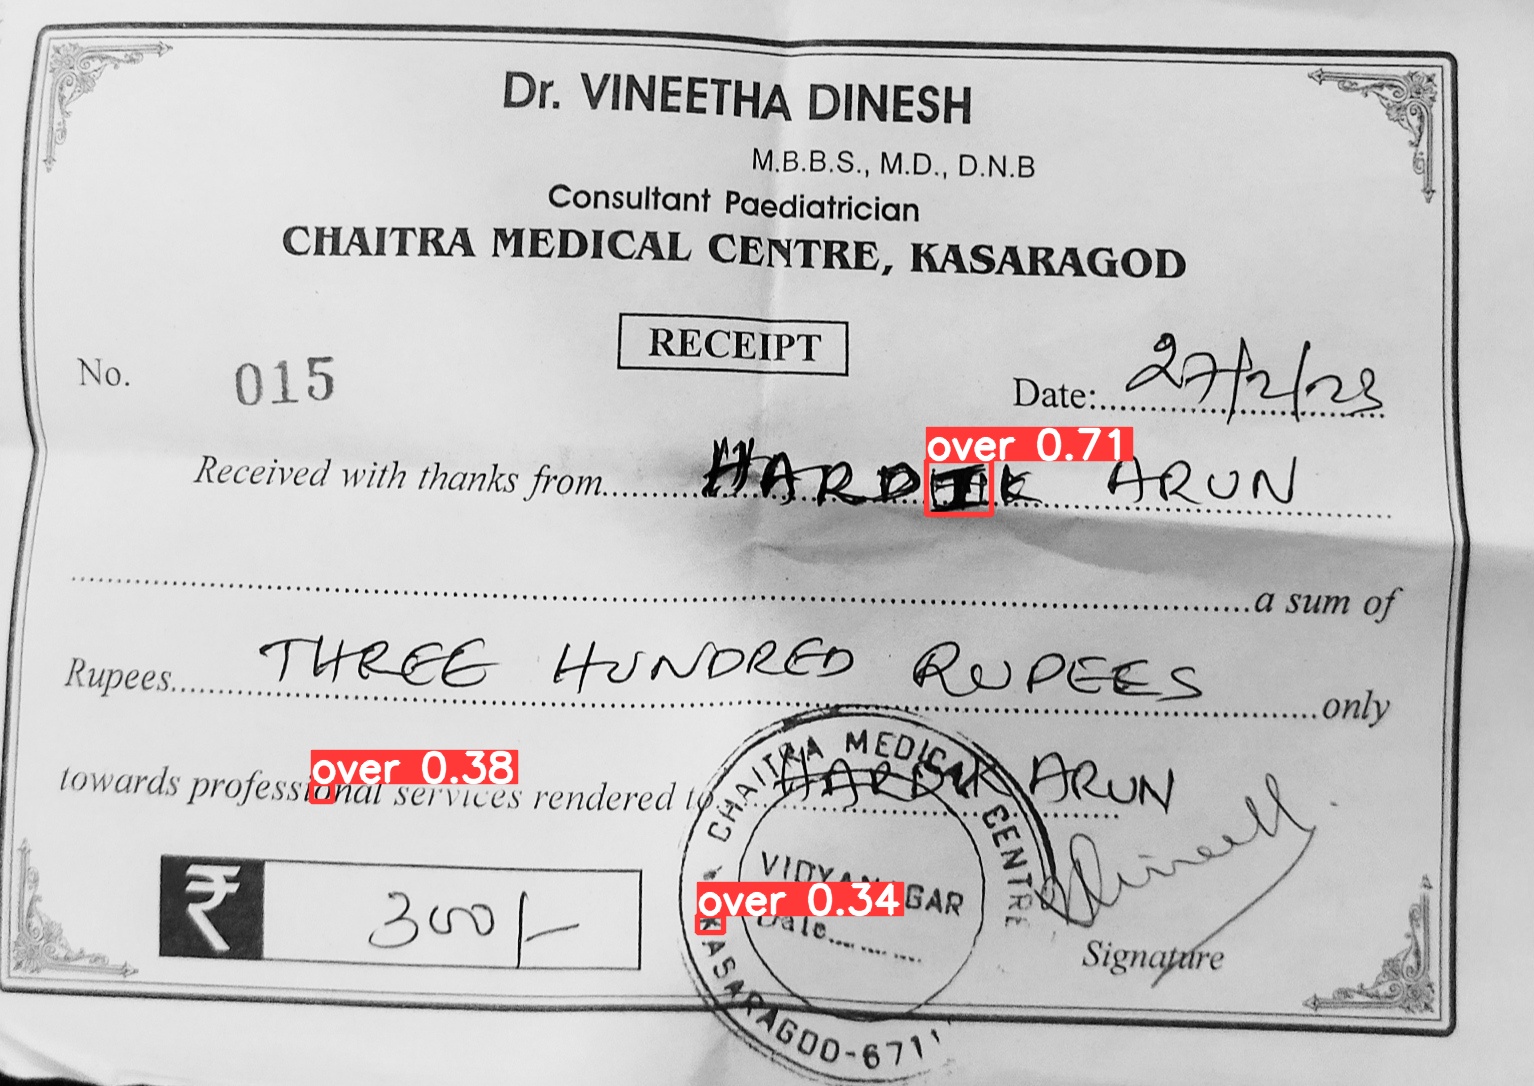 Dr. VINEETHA DINESH
M.B.B.S., M.D., D.N.B
Consultant Paediatrician
CHAITRA MEDICAL CENTRE, KASARAGOD
RECEIPT
No. 015
Date: 27/2/23
over 0.71
Received with thanks from HARDIK ARUN
a sum of
Rupees THREE HUNDRED RUPEES only
over 0.38
towards professional services rendered to HARDIK ARUN
₹ 300/-
CHAITRA MEDICAL CENTRE
over 0.34
Date
KASARAGOD-6711
Signature